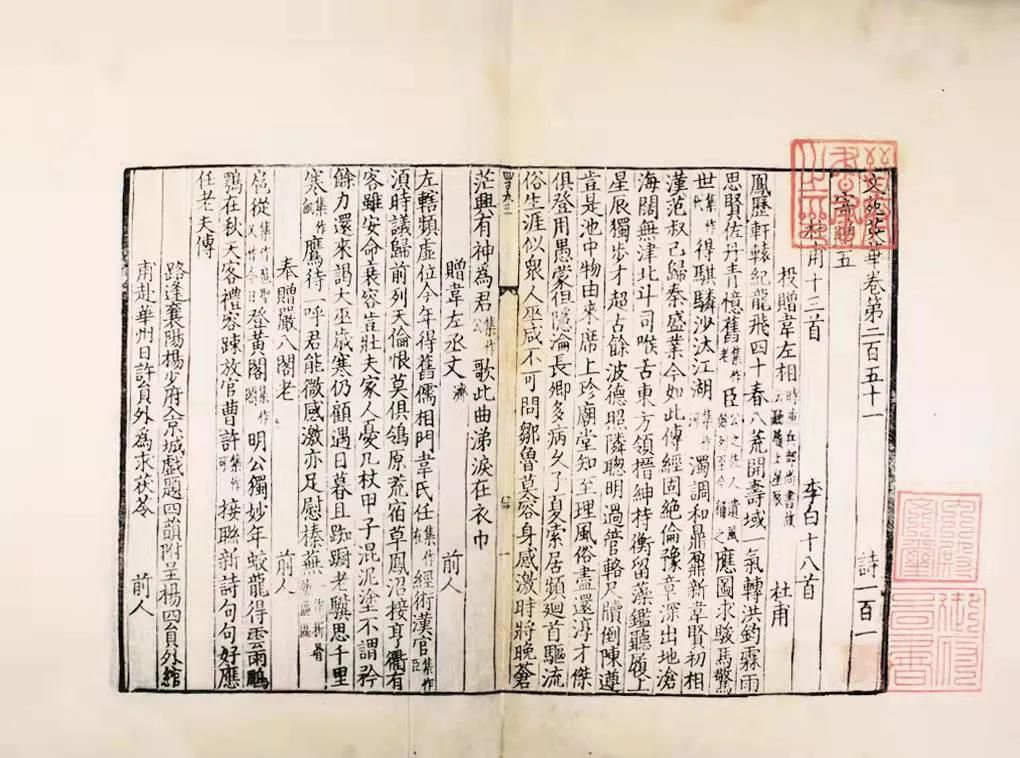 文苑英華卷第二百五十一　詩一百一
寄贈五
杜甫十三首　李白十八首
投贈韋左相時兼兵部尚書故云聽履上星辰　杜甫
鳳歷軒轅紀龍飛四十春八荒開壽域一氣轉洪鈞霖雨
思賢佐丹青憶舊集作老臣公之先人遺風餘列至今稱之應圖求駿馬驚
世集作代得騏驎沙汰江湖集作河濁調和鼎鼐新韋賢初相
漢范叔已歸秦盛業今如此傳經固絕倫豫章深出地滄
海闊無津北斗司喉舌東方領搢紳持衡留藻鑑聽履上
星辰獨步才超古餘波德照隣聰明過管輅尺牘倒陳遵
豈是池中物由來席上珍廟堂知至理風俗盡還淳才傑
俱登用愚蒙但隱淪長卿多病久子夏索居頻廻首驅流
俗生涯似衆人巫咸不可問鄒魯莫容身感激時將晚蒼
茫興有神為君集作公歌此曲涕淚在衣巾
贈韋左丞丈濟　前人
左轄頻虛位今年得舊儒相門韋氏在集作在經術漢官集作臣
須時議歸前列天倫恨莫俱鴒原荒宿草鳳沼接亨衢有
客雖安命衰容豈壯夫家人憂几杖甲子混泥塗不謂矜
餘力還來謁大巫歲寒仍顧遇日暮且踟躕老驥思千里
寒集作飢鷹待一呼君能微感激亦足慰榛蕪
奉贈嚴八閣老　前人
扈從登黃閣明公獨妙年蛟龍得雲雨鵰
鶚在秋天客禮容疎放官曹許集作可接聯新詩句句好應
任老夫傳
路逢襄陽楊少府入京城戲題四韻附呈楊四員外綰
甫赴華州日許員外為求茯苓　前人